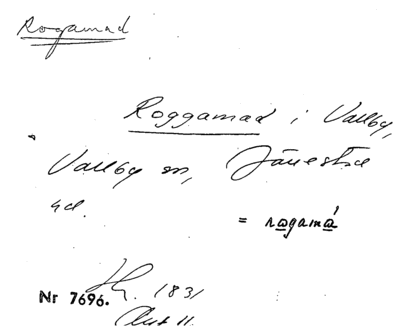 Rogamad
Roggamad i Vallby,
Vallby sn, Järrestad
hd.
= rogamá
Nr 7696. 1831
Akt 11.